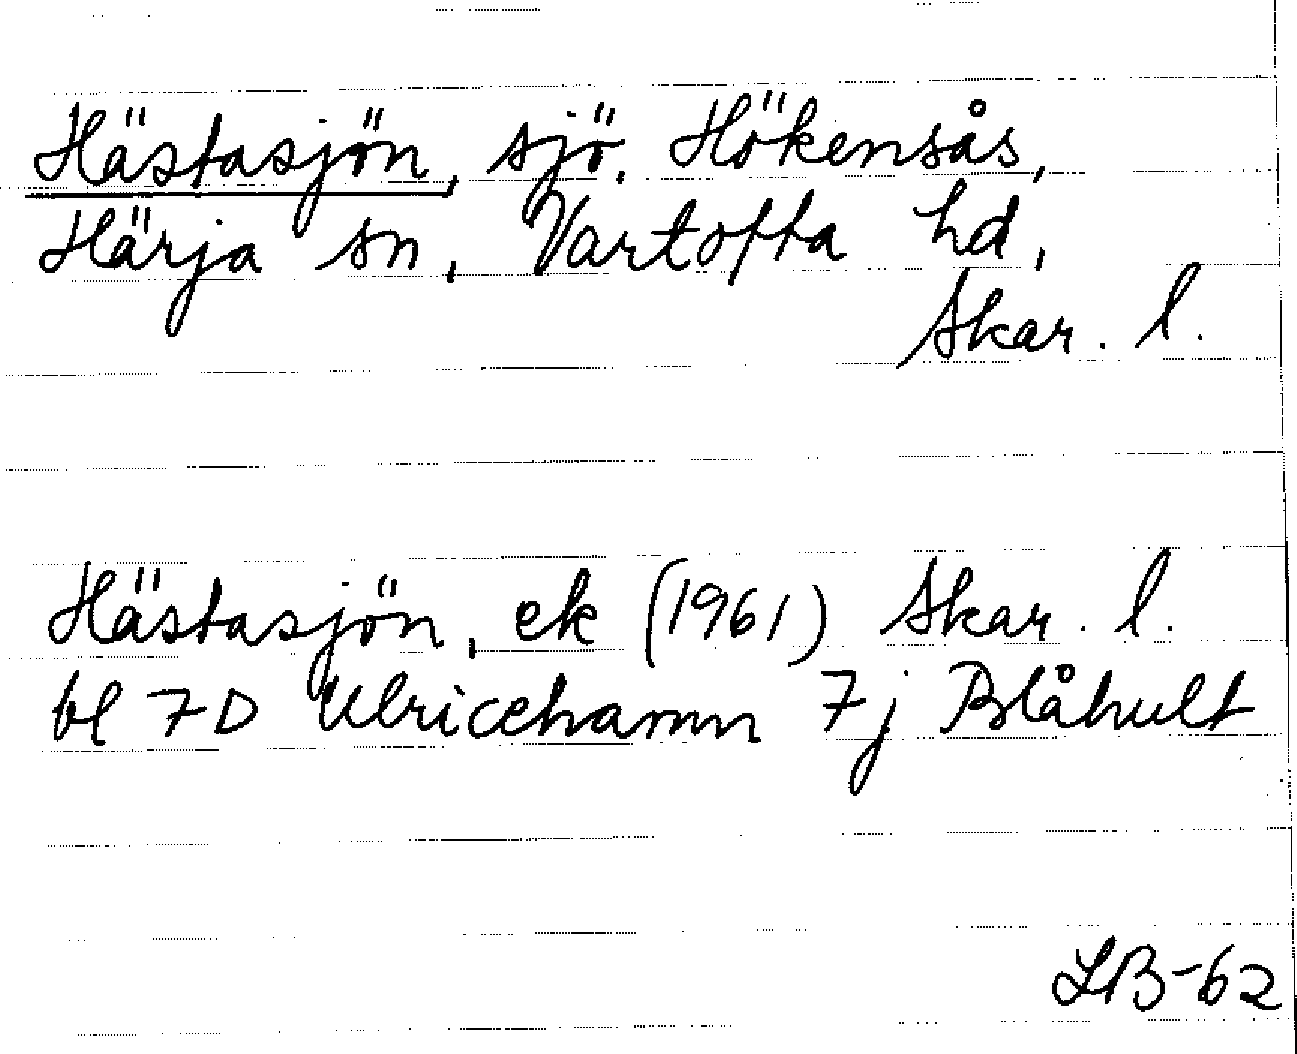 Hästasjön, sjö, Hökensås,
Härja sn, Vartofta hd,
Skar. l.
Hästasjön, ek (1961) Skar. l.
bl 7D Ulricehamn 7j Blåhult
LB-62